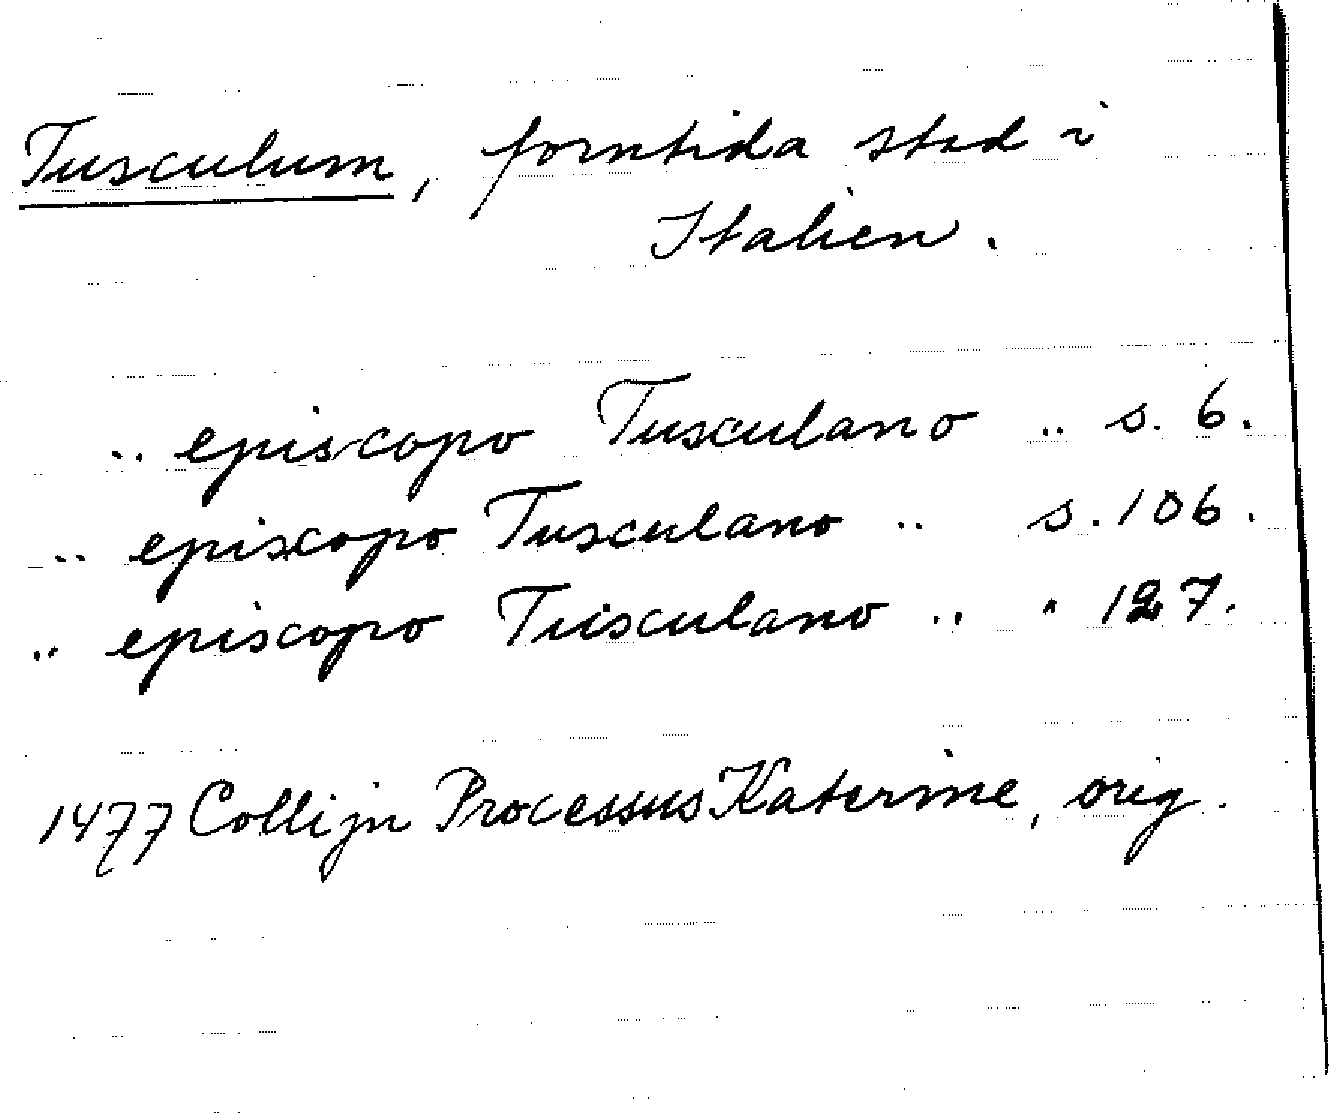 Tusculum, forntida stad i
Italien.
.. episcopo Tusculano .. s. 6.
.. episcopo Tusculano .. s. 106.
.. episcopo Tusculano .. " 127.
1477 Collijn Processus Katerine, orig.